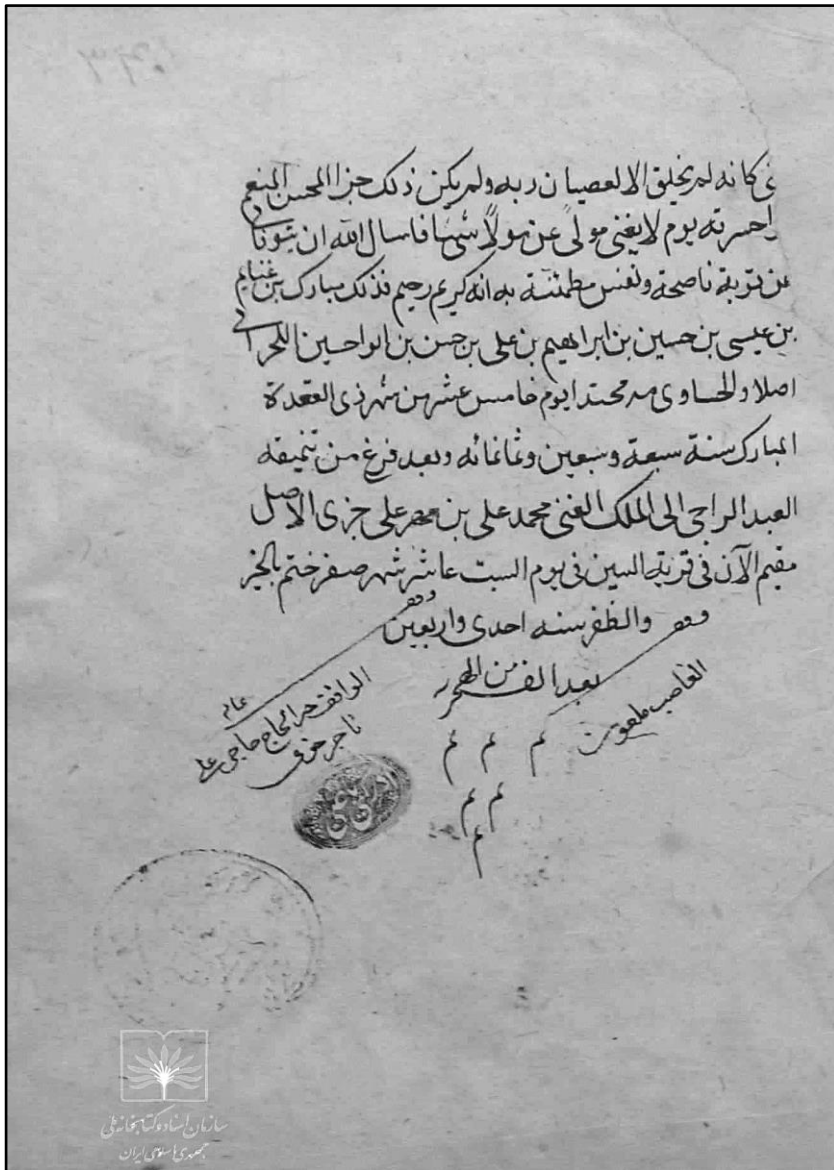 ني كانه لم يخلق الا لعصيان ربه ولم يكن ذلك جزا المحسن المنعم
واحسرته يوم لا يغنى مولىً عن مولاً شيئا فاسال الله ان يتوفانا
عن توبة ناصحة ونفس مطمئنة به انه كريم رحيم فذلك مبارك بن غنايم
بن عيسى بن حسين بن ابراهيم بن على بن حسن بن ابو احسين
اصلا والحساوى محتدا يوم خامس عشر من شهر ذى القعدة
المبارك سنة سبعة وسبعين وثمانمائه وبعد فرغ من تنميقه
العبد الراجى الى الملك الغنى محمد على بن مهر على جزى الاصل
مقيم الآن فى قرية السين فى يوم السبت عاشر شهر صفر ختم بالخير
والظفر سنه احدى واربعين
بعد الف من الهجره
الغاصب ملعون
وقف
وقف
عام
الواقف حاجى على
تاجر
م م م
م م
م
سازمان اسناد و کتابخانه ملی
جمهوری اسلامی ایران